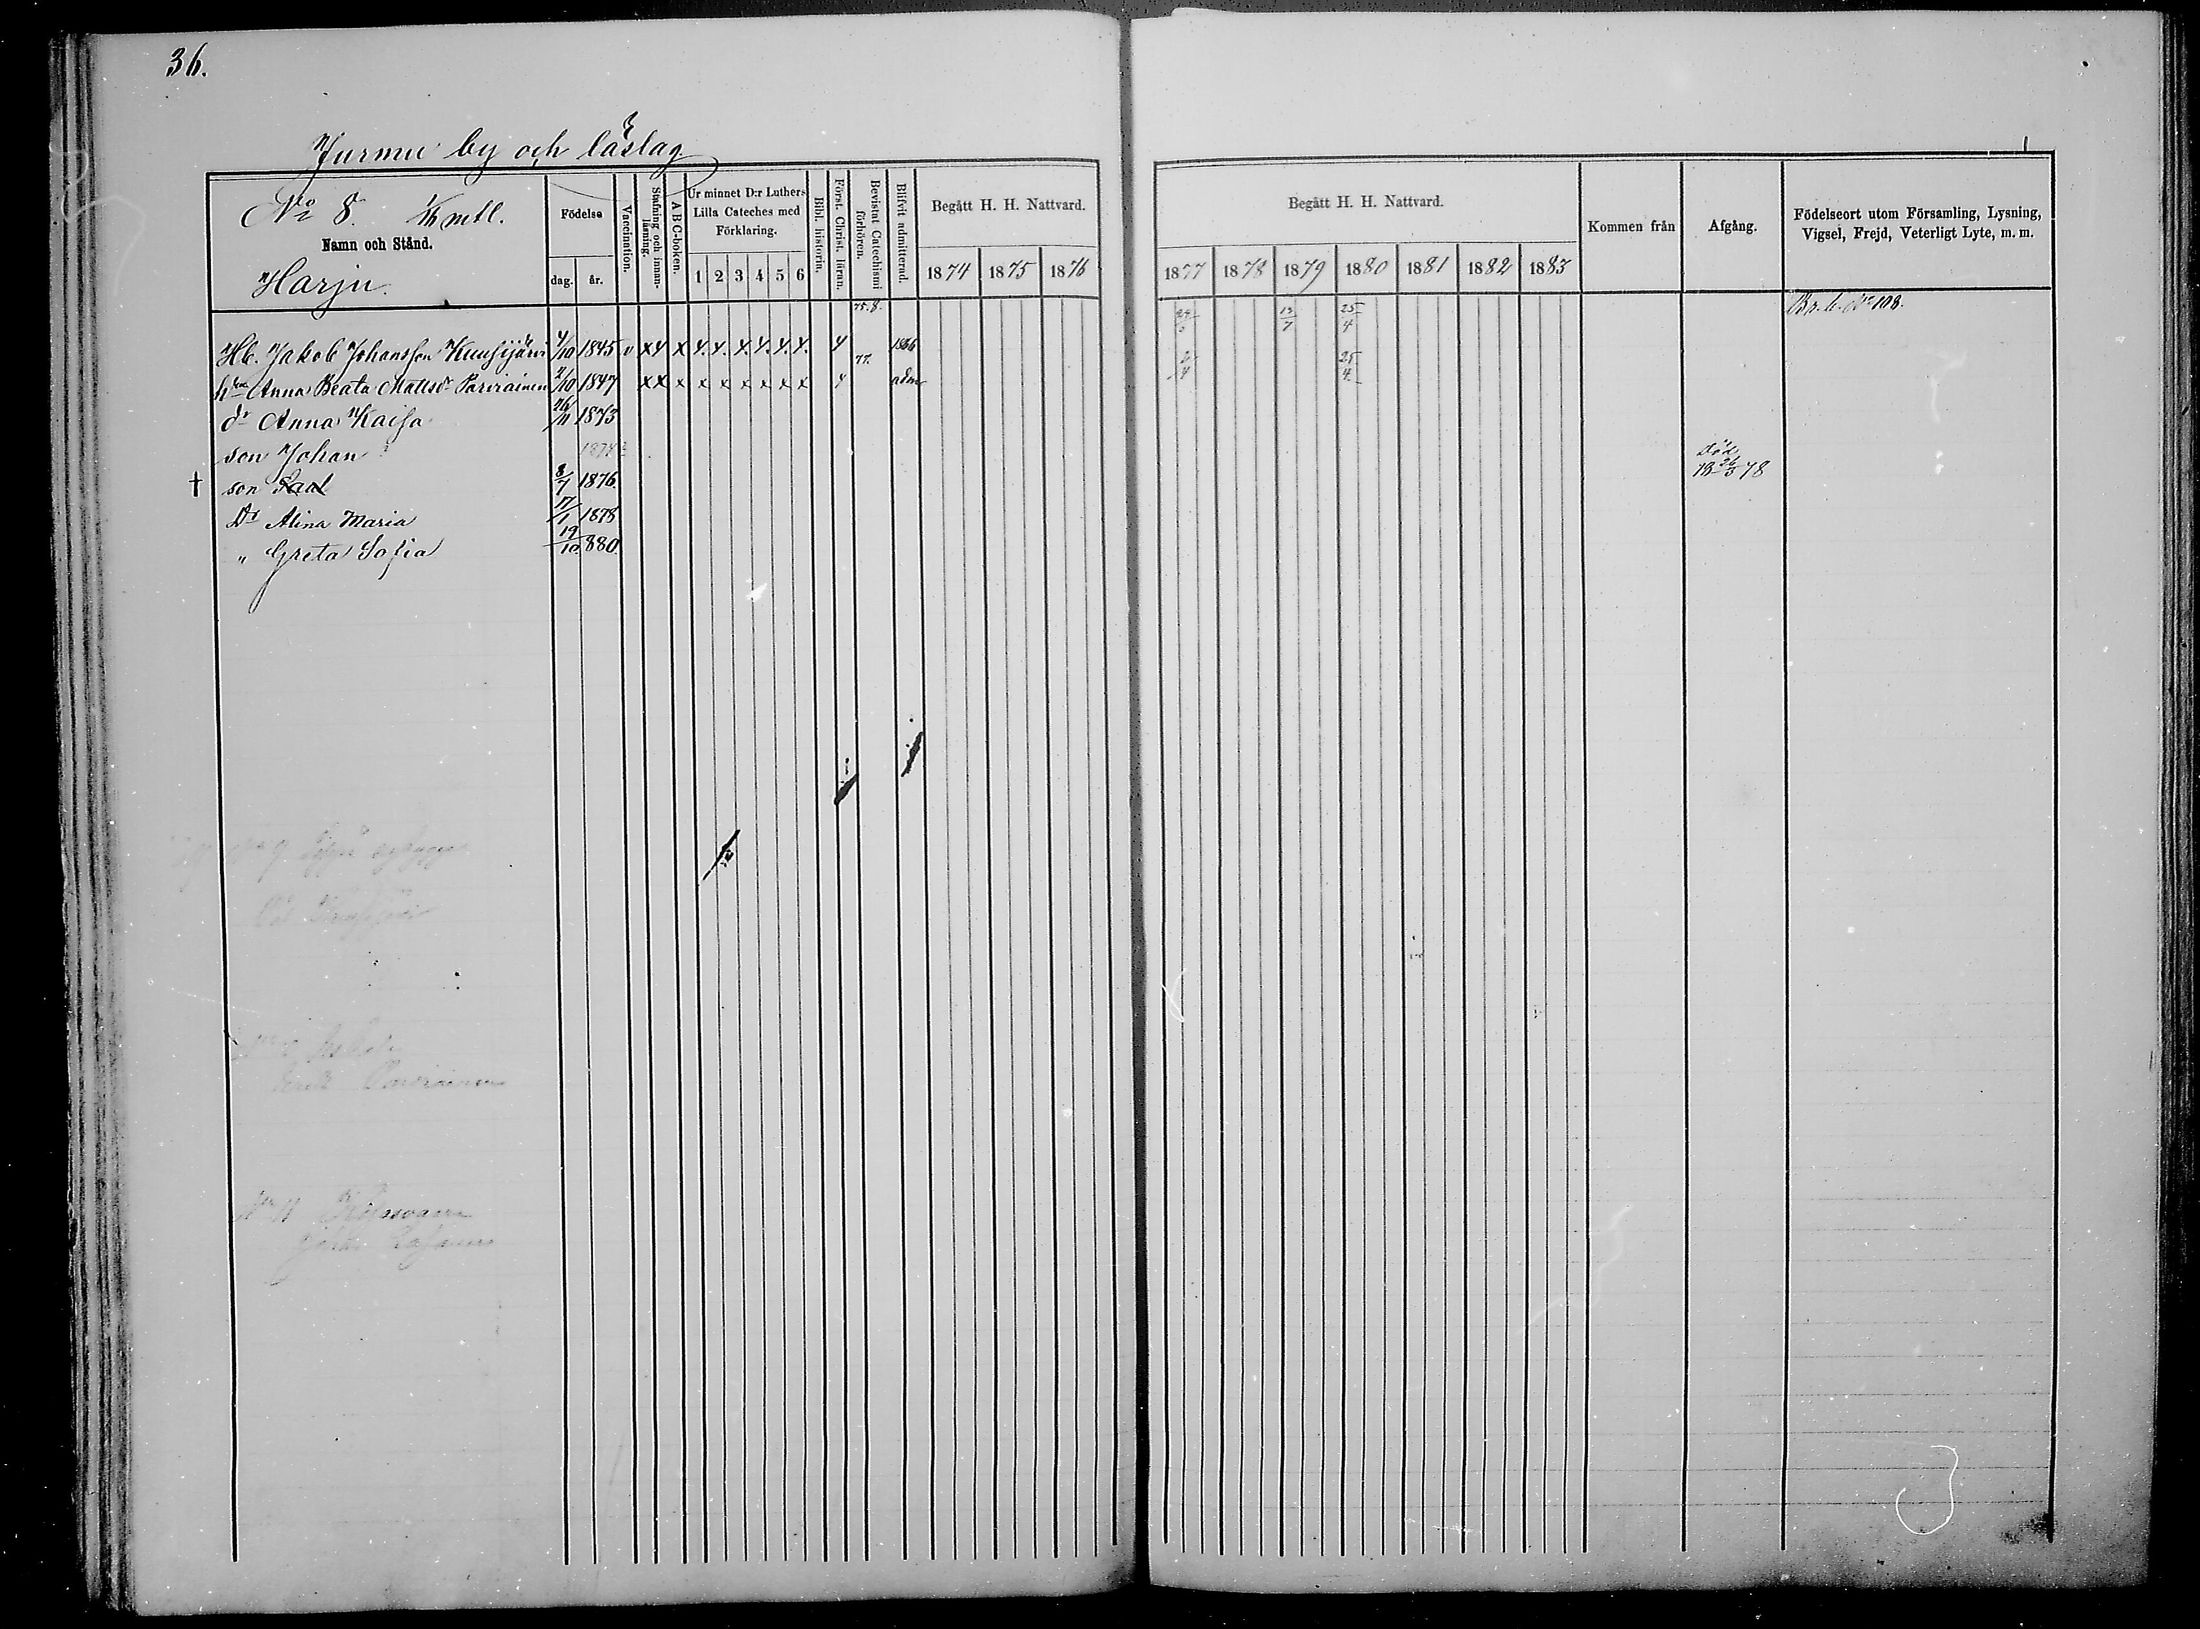 36.
Jurmu by och läslag
No 8. Kmtl.
Namn och Stånd.
Harju.
Födelse
dag. år.
Vaccination.
Stafning och innanläsning.
A B C-boken.
Ur minnet D:r Luthers Lilla Cateches med Förklaring.
1 2 3 4 5 6
Bibl. historin.
Först. Christ. läran.
Bevistat Catechismi förhören.
Blifvit admitterad.
Begått H. H. Nattvard.
1874 1875 1876
Begått H. H. Nattvard.
1877 1878 1879 1880 1881 1882 1883
Kommen från
Afgång.
Födelseort utom Församling, Lysning, Vigsel, Frejd, Veterligt Lyte, m. m.
75. 8. 13/7 25/4 Br. b. No 108.
Hb. Jakob Johansson Kuusijärvi 4/10 1845 v x4 x 4. 4. 4. 4. 4. 4. 4 1866
77. 25/4
hu Anna Beata Mattsdr Parviainen 2/10 1847 xx x x x x x x x 4 adm
dr Anna Kaisa 26/11 1873
son Johan 1874?
Död
† son Saul 8/7 1876 18 26/5 78
Dr Alina Maria 17/1 1878
" Greta Sofia 19/10 880